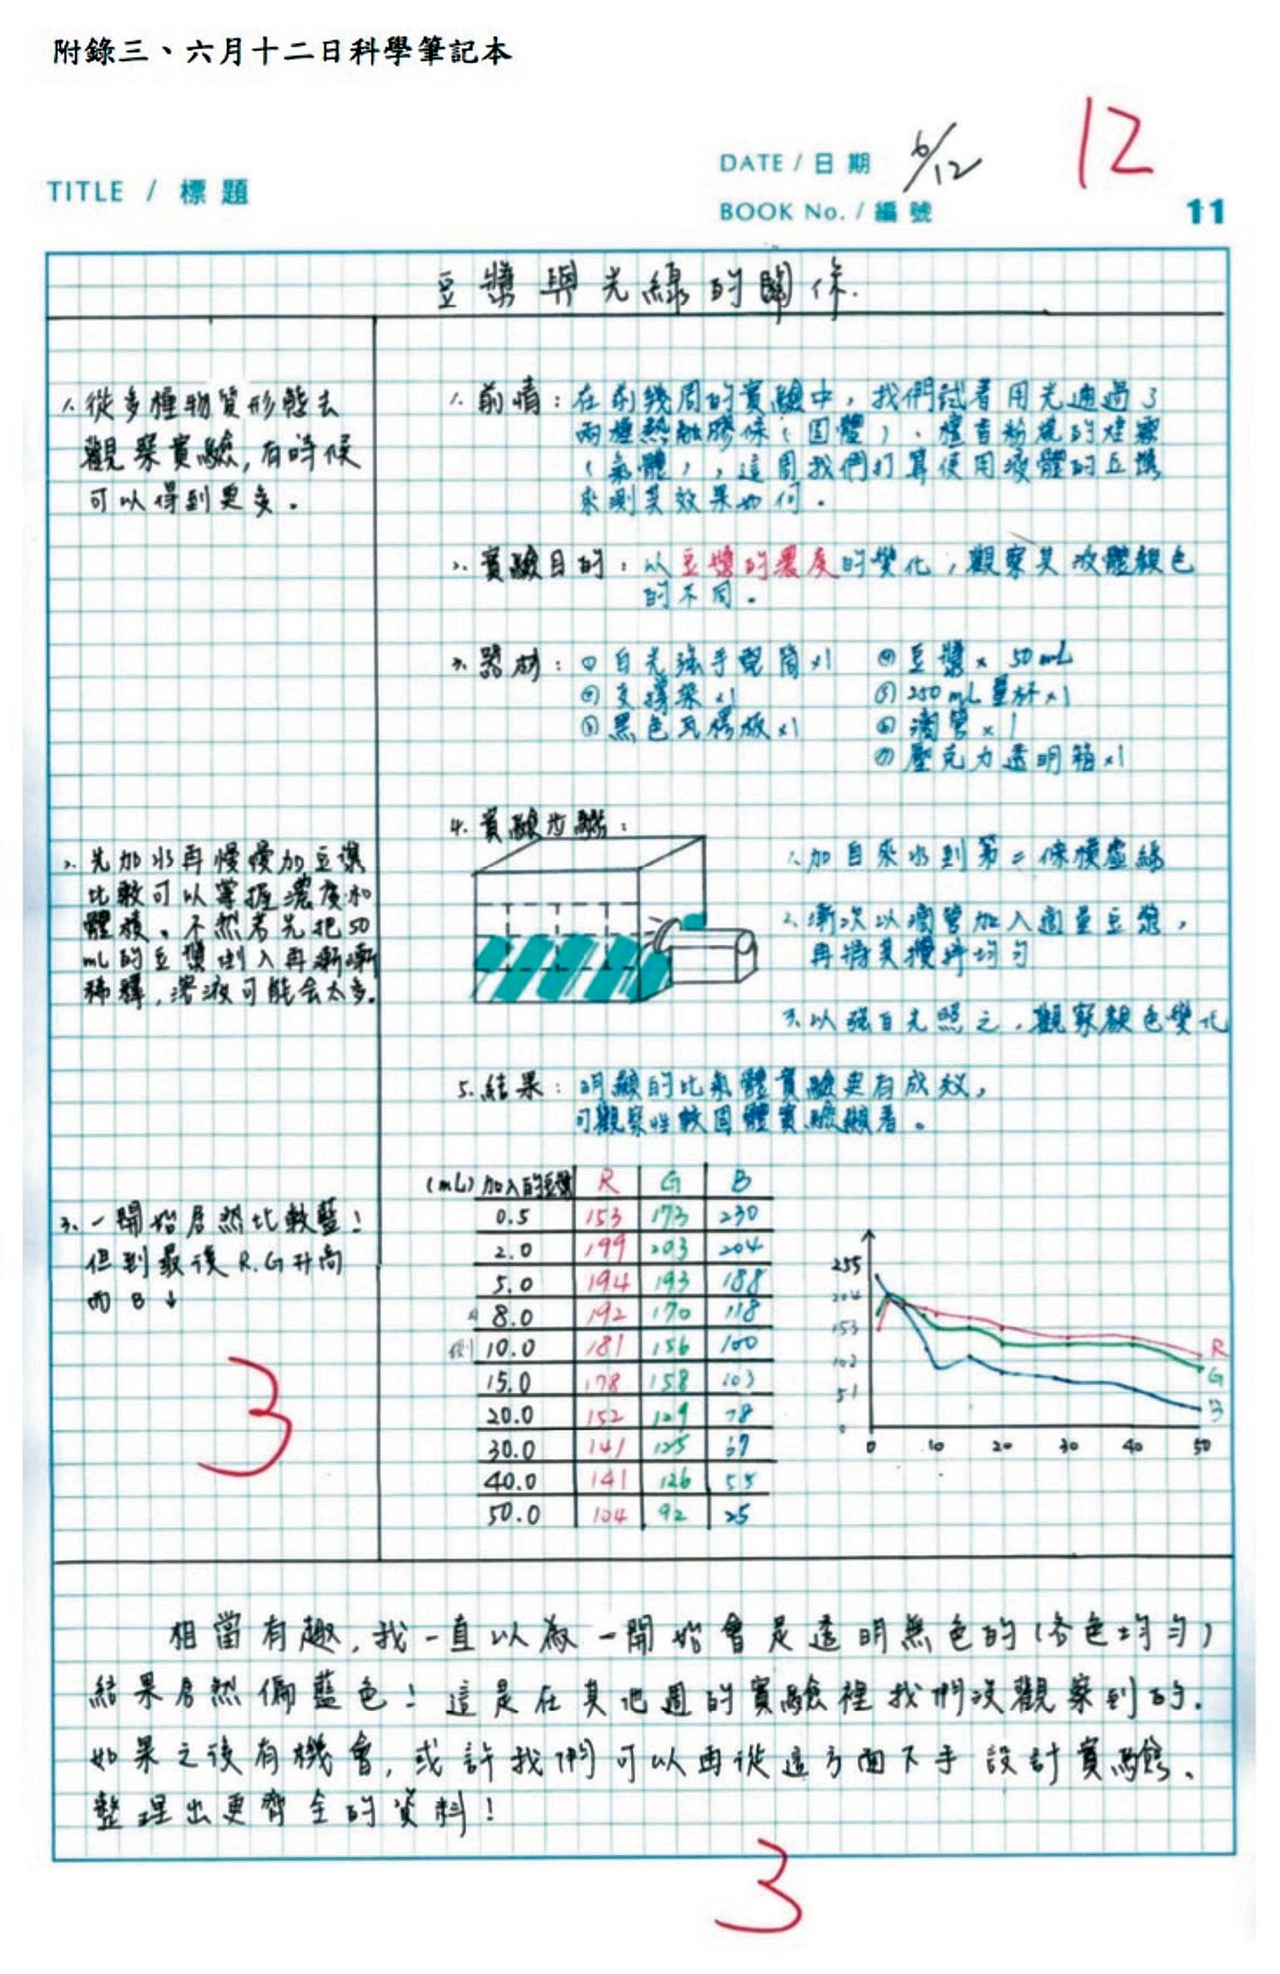 附錄三、六月十二日科學筆記本
12
DATE / 日期 6/12
TITLE / 標題
BOOK No. / 編號
11
豆漿與光線的關係.
1. 從多種物質形態去
觀察實驗,有時候
可以得到更多。
1. 前情：在前幾周的實驗中，我們試著用光通過了
兩種熱融膠條(固體)、檀香粉燒的煙霧
(氣體)，這周我們打算使用液體的豆漿
來測其效果如何。
2. 實驗目的：以豆漿的濃度的變化，觀察其液體顏色
的不同。
3. 器材：① 白光強手電筒×1
② 支撐架×1
③ 黑色瓦楞板×1
④ 豆漿× 50mL
⑤ 250mL量杯×1
⑥ 滴管×1
⑦ 壓克力透明箱×1
4. 實驗步驟：
1. 加自來水到第二條橫虛線
2. 漸次以滴管加入適量豆漿，
再將其攪拌均勻
3. 以強白光照之，觀察顏色變化
2. 先加水再慢慢加豆漿
比較可以掌握濃度和
體積。不然若先把50
mL的豆漿倒入再漸漸
稀釋,溶液可能會太多.
5. 結果：明顯的比氣體實驗更有成效，
可觀察性較固體實驗顯著。
3. 一開始居然比較藍！
但到最後R.G升高
而B↓
3
(mL)加入的豆漿 R G B
0.5 153 173 230
2.0 199 203 204
5.0 194 193 188
8.0 192 170 118
10.0 181 156 100
15.0 178 158 103
20.0 152 129 78
30.0 141 125 67
40.0 141 126 55
50.0 104 92 25
255
204
153
102
51
0
0 10 20 30 40 50
R
G
B
相當有趣,我一直以為一開始會是透明無色的(各色均勻)
結果居然偏藍色！這是在其他週的實驗裡我們沒觀察到的.
如果之後有機會,或許我們可以再從這方面下手設計實驗、
整理出更齊全的資料！
3